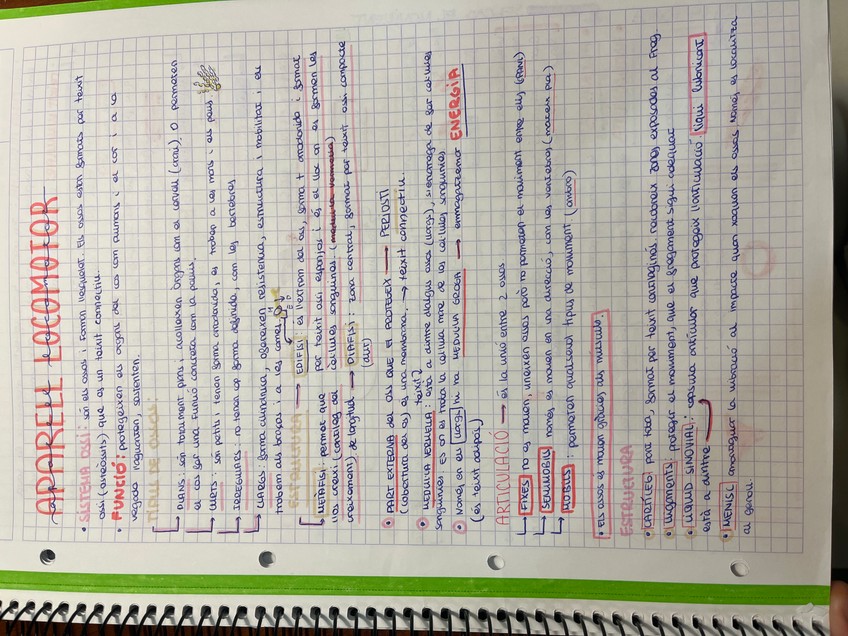 APARELL LOCOMOTOR
• SISTEMA OSSI: són els ossos i formen l'esquelet. Els ossos estan formats per teixit
ossi (osteòcits) que és un teixit connectiu.
• FUNCIÓ: protegeixen els òrgans del cos com pulmons i el cor i a la
vegada t'aguanten, sostenten.
TIPUS DE OSSOS:
PLANS: són totalment plans i acullen òrgans com el cervell (crani) O permeten
el cos fer una funció concreta com la pelvis.
CURTS: són petits i tenen forma arrodonida, es troben a les mans i els peus.
IRREGULARS: no tenen cap forma definida, com les vertebres
LLARGS: forma cilíndrica, ofereixen resistència, estructura i mobilitat, es
troben als braços i a les cames
ESTRUCTURA → EDIFISI: és l'extrem del os, forma + arrodonida i format
per teixit ossi esponjós i és el lloc on es formen les
cèl·lules sanguínies. (medul·la vermella)
METAFISI: permet que
l'os creixi (cartílag del
creixement) de longitud → DIAFISI: zona central, format per teixit ossi compacte
(dur)
• PART EXTERNA del os que el PROTEGEIX → PERIOSTI
(cobertura del os) és una membrana. → teixit connectiu.
teixit
• MEDUL·LA VERMELLA: està a dintre d'alguns ossos (llargs), s'encarrega de fer cèl·lules
sanguínies. És on es troba la cèl·lula mare de les cèl·lules sanguínies
• Només en els llargs hi ha MEDUL·LA GROGA → emmagatzemar ENERGIA
(és teixit adipós)
ARTICULACIÓ → és la unió entre 2 ossos
FIXES no es mouen, uneixen ossos però no permeten el moviment entre ells (crani)
SEMIMÒBILS només es mouen en una direcció, com les vertebres (marquen pas)
MÒBILS: permeten qualsevol tipus de moviment (ombro)
• Els ossos es mouen gràcies als músculs.
ESTRUCTURA
• CARTÍLEG: part tova, format per teixit cartilaginós. Recobreix zones exposades al Freg
• Lligaments: protegir el moviment, que el fregament sigui adequat
• LÍQUID SINOVIAL: càpsula articular que protegeix l'articulació. líquid lubricant
està a dintre
• MENISC amortiguar la vibració al impacte quan xoquen els ossos. Només es localitza
al genoll.